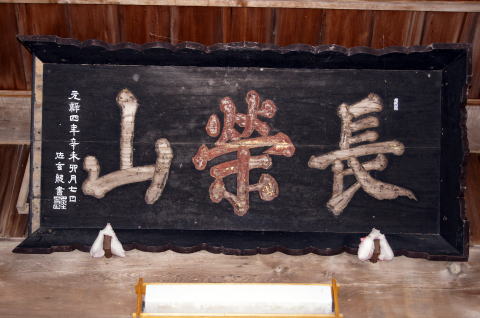 長榮山
元祿四年辛未卯月七日
佐玄龍書